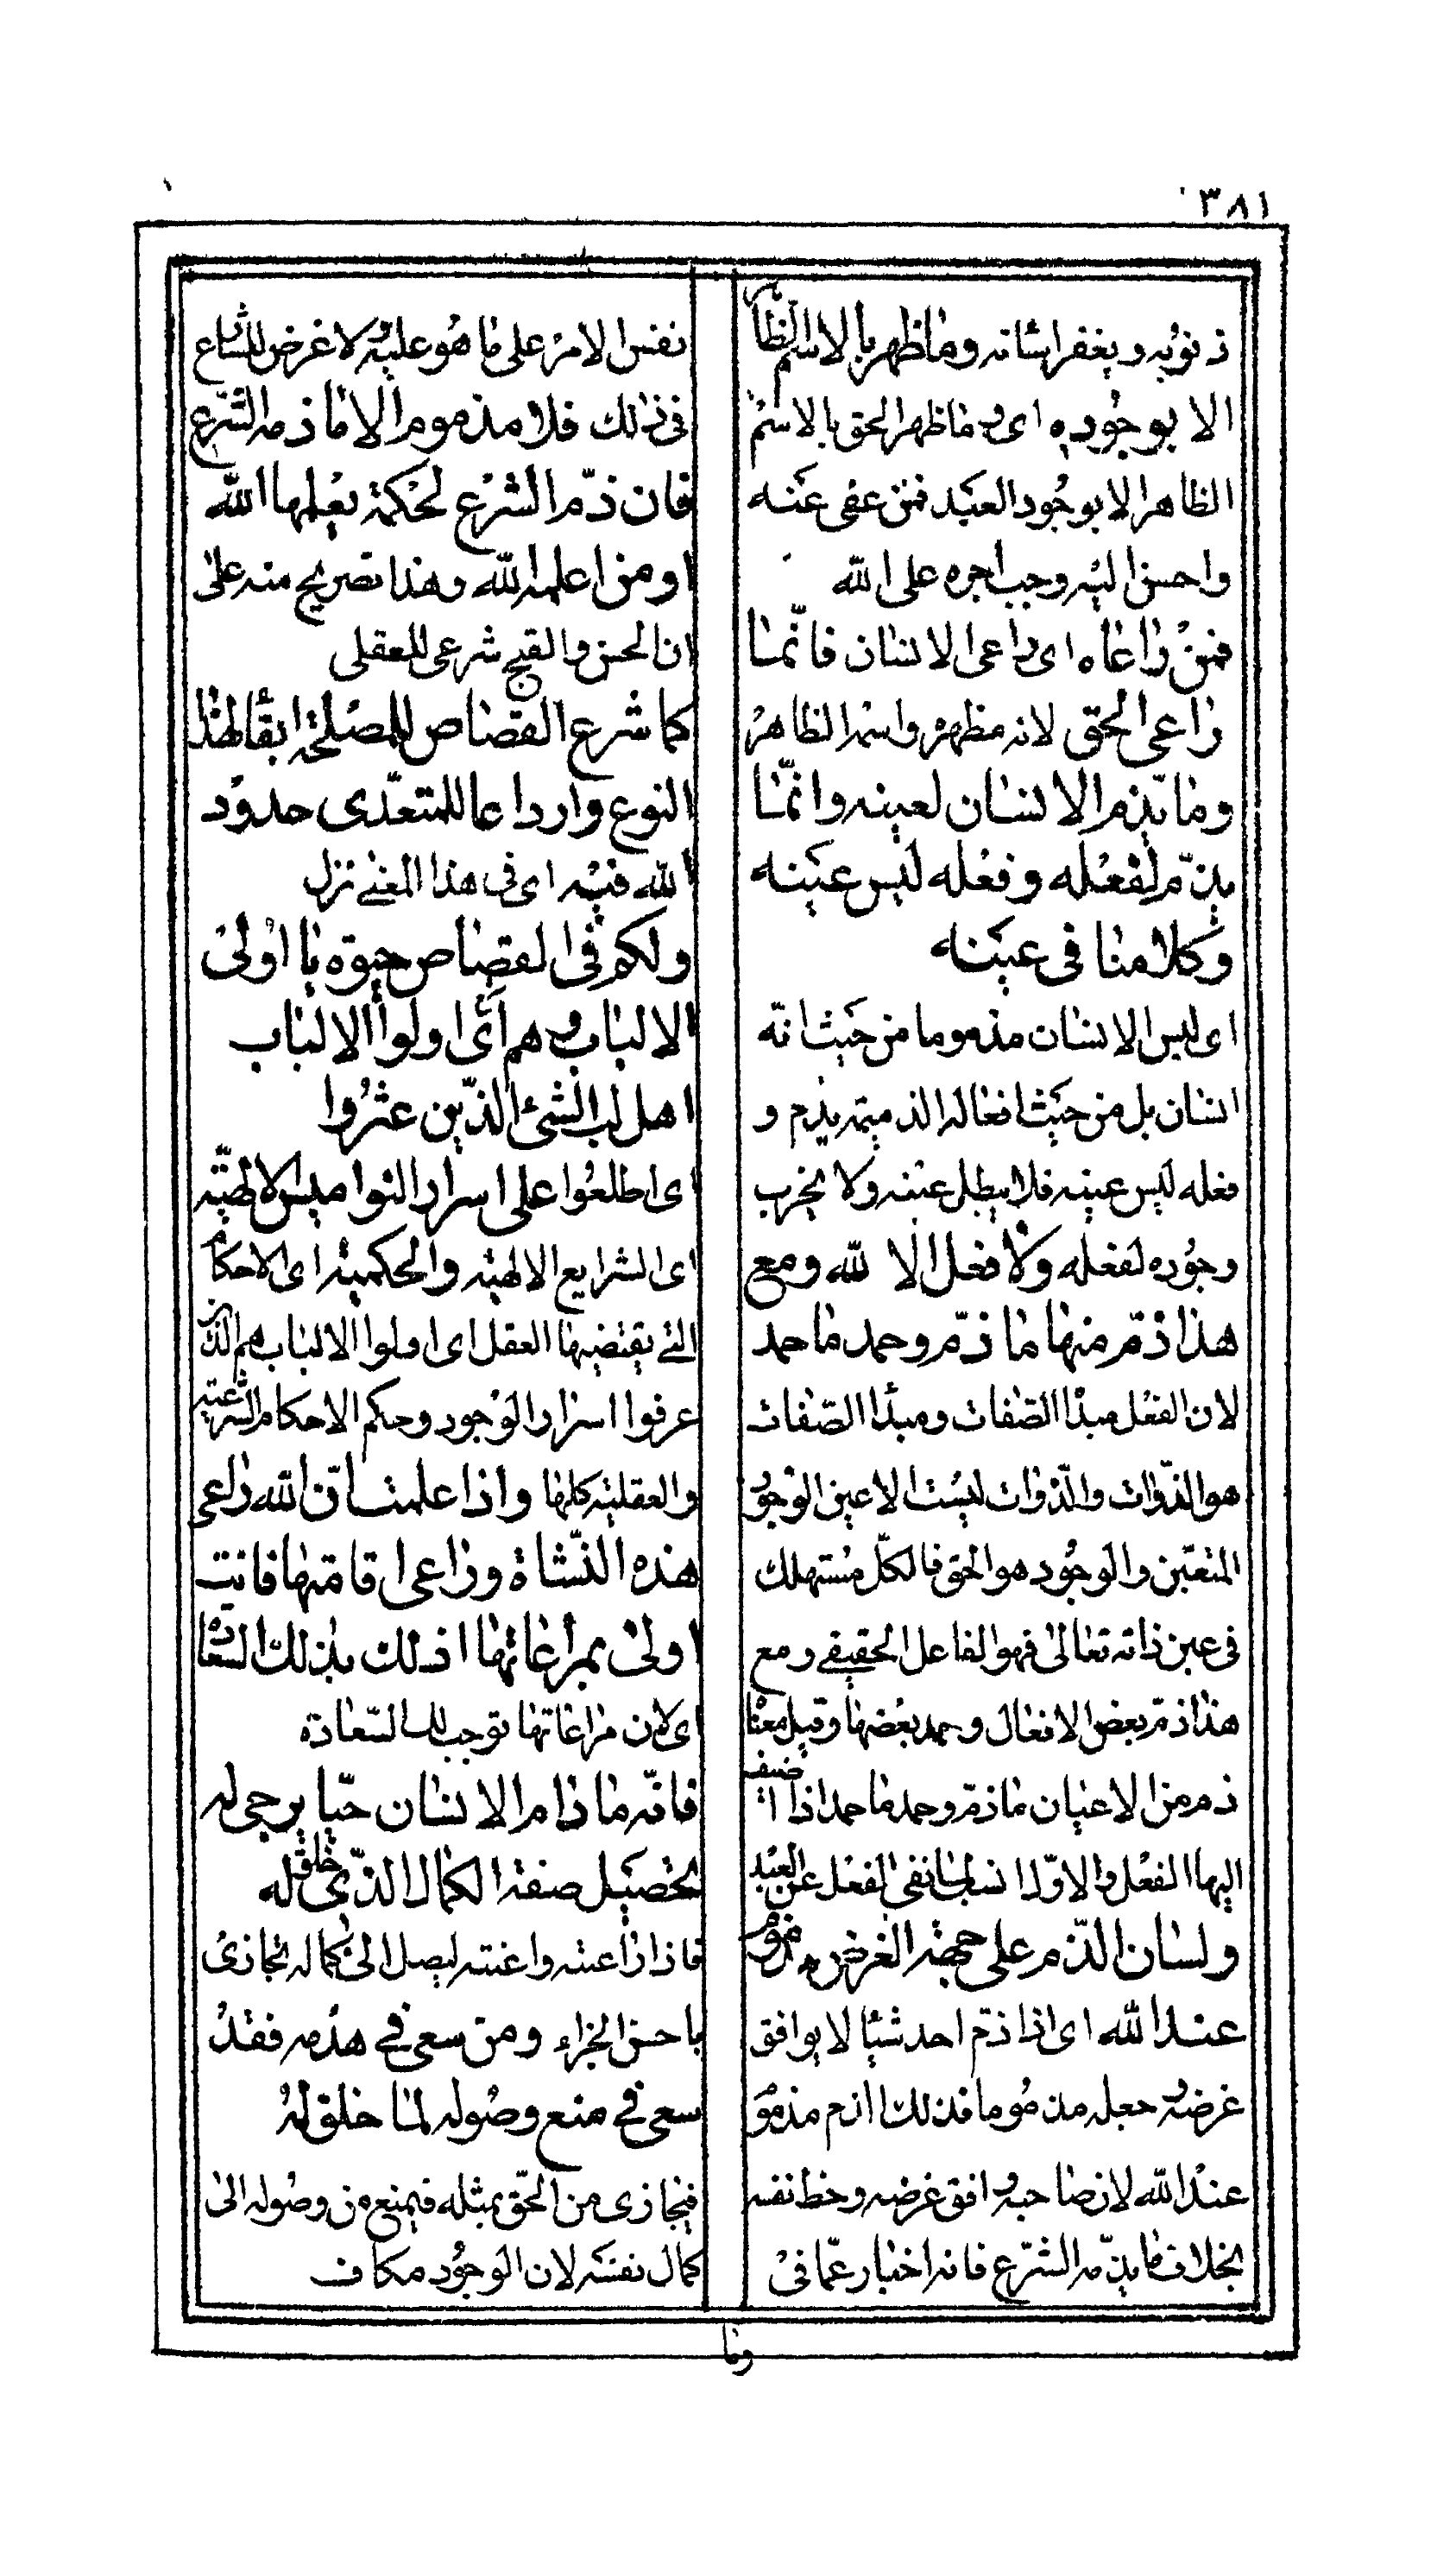 ٣٨١
ذنوبه ويغفر اساته وما ظهر بالاسم الظاهر
الا بوجوده اى وما ظهر الحق بالاسم
الظاهر الا بوجود العبد فمن عفى عنه
واحسن اليه وجب اجره على الله
فمن راعاه اى راعى الانسان فانّما
راعى الحق لانه مظهره واسمه الظاهر
وما يذم الانسان لعينه وانّما
يذمّ لفعله وفعله ليس عينه
وكلامنا فى عينه
اى ليس الانسان مذموما من حيث انّه
انسان بل من حيث افعاله الذميمة يذم و
فعله ليس عينه فلا يبطل عينه ولا يخرب
وجوده لفعله ولا فعل الا لله ومع
هذا ذمّ منها ما ذمّ وحمد ما حمد
لان الفعل مبدأ الصفات ومبدأ الصّفات
هو الذّوات والذّوات ليست الا عين الوجود
المتعيّن والوجود هو الحق فالكلّ مستهلك
فى عين ذاته تعالى فهو الفاعل الحقيقي ومع
هذا ذمّ بعض الافعال وحمد بعضها وقيل معنا
ذم من الاعيان ما ذمّ وحمد ما حمد اذا اضيف
اليها الفعل والاوّل انسب نفى الفعل عن العبد
ولسان الذّم على جهة الغرض مذموم
عند الله اى اذا ذمّ احد شيئا لا يوافق
غرضه جعله مذموما فذلك الذم مذموم
عند الله لان صاحبه وافق غرضه وحظ نفسه
بخلاف ما يذمّه الشّرع فانه اخبار عمّا فى
نفس الامر على ما هو عليه لا غرض للشارع
فى ذلك فلا مذموم الا ما ذمه الشّرع
فان ذمّ الشرع لحكمة يعلمها الله
او من اعلمه الله وهذا تصريح منه على
ان الحسن والقبح شرعى لا عقلى
كما شرع القصاص للمصلحة ابقاء لهذا
النوع واردا عا للمتعدّى حدود
الله فيه اى فى هذا المعنى نزل
ولكم فى القصاص حيوة يا اولى
الالباب وهم اى اولوا الالباب
اهل لب الشئ الذّين عثروا
اى اطلعوا على اسرار النواميس الالهيّة
اى الشرايع الالهية والحكمية اى الاحكام
التى يقتضيها العقل اى اولوا الالباب هم الذين
عرفوا اسرار الوجود وحكم الاحكام الشرعية
والعقلية كلها واذا علمت انّ الله راعى
هذه النّشاة وراعى اقامتها فانت
اولى بمراعاتها اذ لك بذلك السّعادة
اى لان مراعاتها توجب لك السّعادة
فانّه ما دام الانسان حيّا يرجى له
تحصيل صفة الكمال الذّى خلق له
فاذا راعيته واعنته ليصل الى كماله تجازى
باحسن الجزاء ومن سعى فى هدمه فقد
سعى فى منع وصوله لما خلق له
فيجازى من الحقّ بمثله فيمنع من وصوله الى
كمال نفسه لان الوجود مكاف
وما